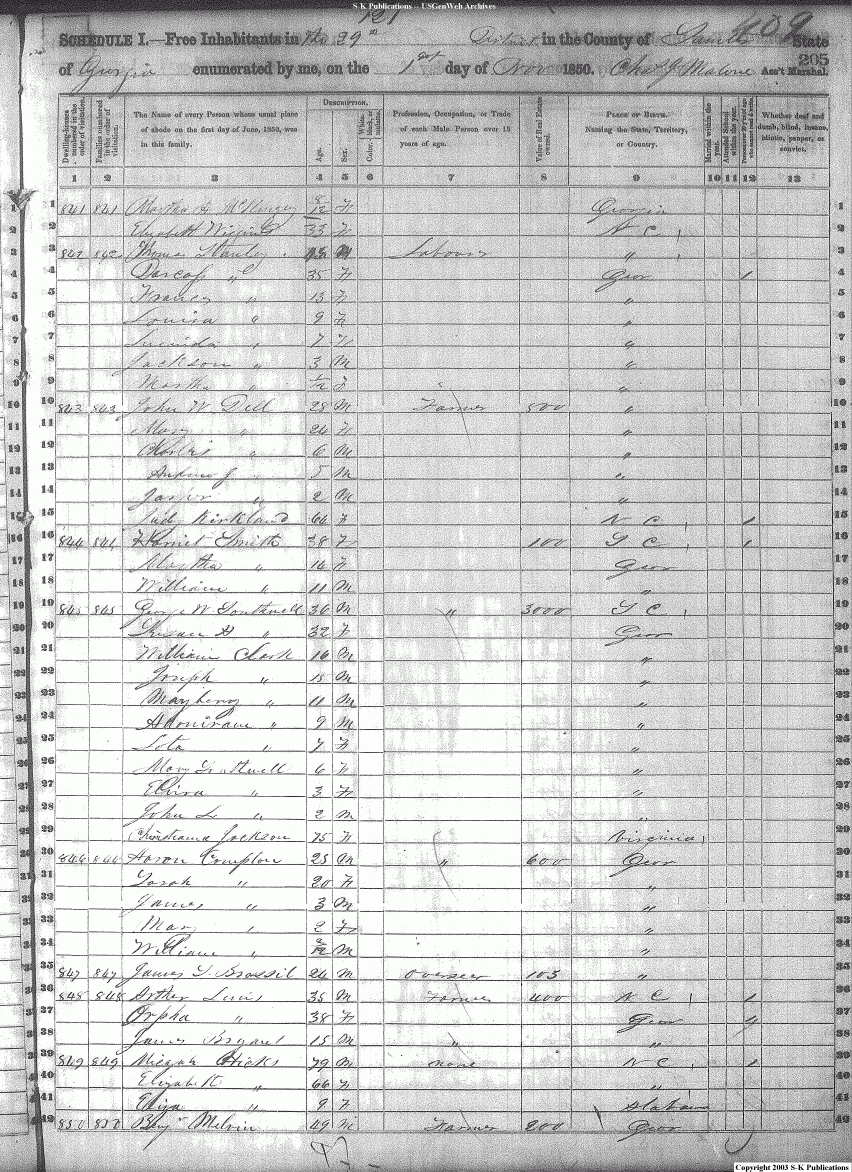 S-K Publications -- USGenWeb Archives
121
609
SCHEDULE I.—Free Inhabitants in The 29th District in the County of State
205
of Georgia enumerated by me, on the 1st day of Nov 1850. Chas J Malone Ass't Marshal.
Dwelling-houses numbered in the order of visitation. Families numbered in the order of visitation. The Name of every Person whose usual place of abode on the first day of June, 1850, was in this family. DESCRIPTION. Age. Sex. Color, White, black, or mulatto. Profession, Occupation, or Trade of each Male Person over 15 years of age. Value of Real Estate owned. PLACE OF BIRTH. Naming the State, Territory, or Country. Married within the year. Attended School within the year. Persons over 20 y'rs of age who cannot read & write. Whether deaf and dumb, blind, insane, idiotic, pauper, or convict.
1 2 3 4 5 6 7 8 9 10 11 12 13
1 841 841 Martha A McKinzey /12 F Georgia 1
2 Elizabeth Wiggins 33 F N C 2
3 842 842 Thomas Stanley M Labourer " 3
4 Darcas " 35 F Geor 1 4
5 Frances " 13 F " 5
6 Louisa " 9 F " 6
7 Lucinda " 7 F " 7
8 Jackson " 3 M " 8
9 Martha " /12 F " 9
10 843 843 John W Dell 28 M Farmer 500 " 10
11 Mary " 24 F " 11
12 Charles " 6 M " 12
13 Andrew J " 5 M " 13
14 Jasper " 2 M " 14
15 Judy Kirkland 64 F N C 1 15
16 844 844 Harriet Smith 38 F 100 S C 1 16
17 Martha " 14 F Geor 17
18 William " 11 M " 18
19 845 845 George W Southwell 36 M " 3000 S C 19
20 Susan " 32 F Geor 20
21 William Clark 16 M " 21
22 Joseph " 15 M " 22
23 Mayberry " 11 M " 23
24 Adoniram " 9 M " 24
25 Lota " 7 F " 25
26 Mary Southwell 6 F " 26
27 Elvira " 3 F " 27
28 John L " 2 M " 28
29 Christiana Jackson 75 F Virginia 29
30 846 846 Aaron Compton 25 M " 600 Geor 30
31 Sarah " 20 F " 31
32 James " 3 M " 32
33 Mary " 2 F " 33
34 William " /12 M " 34
35 847 847 James Brassil 24 M Overseer 105 " 35
36 848 848 Arther Lewis 35 M Farmer 400 N C 1 36
37 Orpha " 38 F Geor 37
38 James Bryant 15 M " " 38
39 849 849 Micajah Hicks 79 M none N C 1 39
40 Elizabeth " 66 F " 40
41 Eliza " 9 F Alabama 41
42 850 850 Benj Melvin 49 M Farmer 200 Geor 42
Copyright 2003 S-K Publications